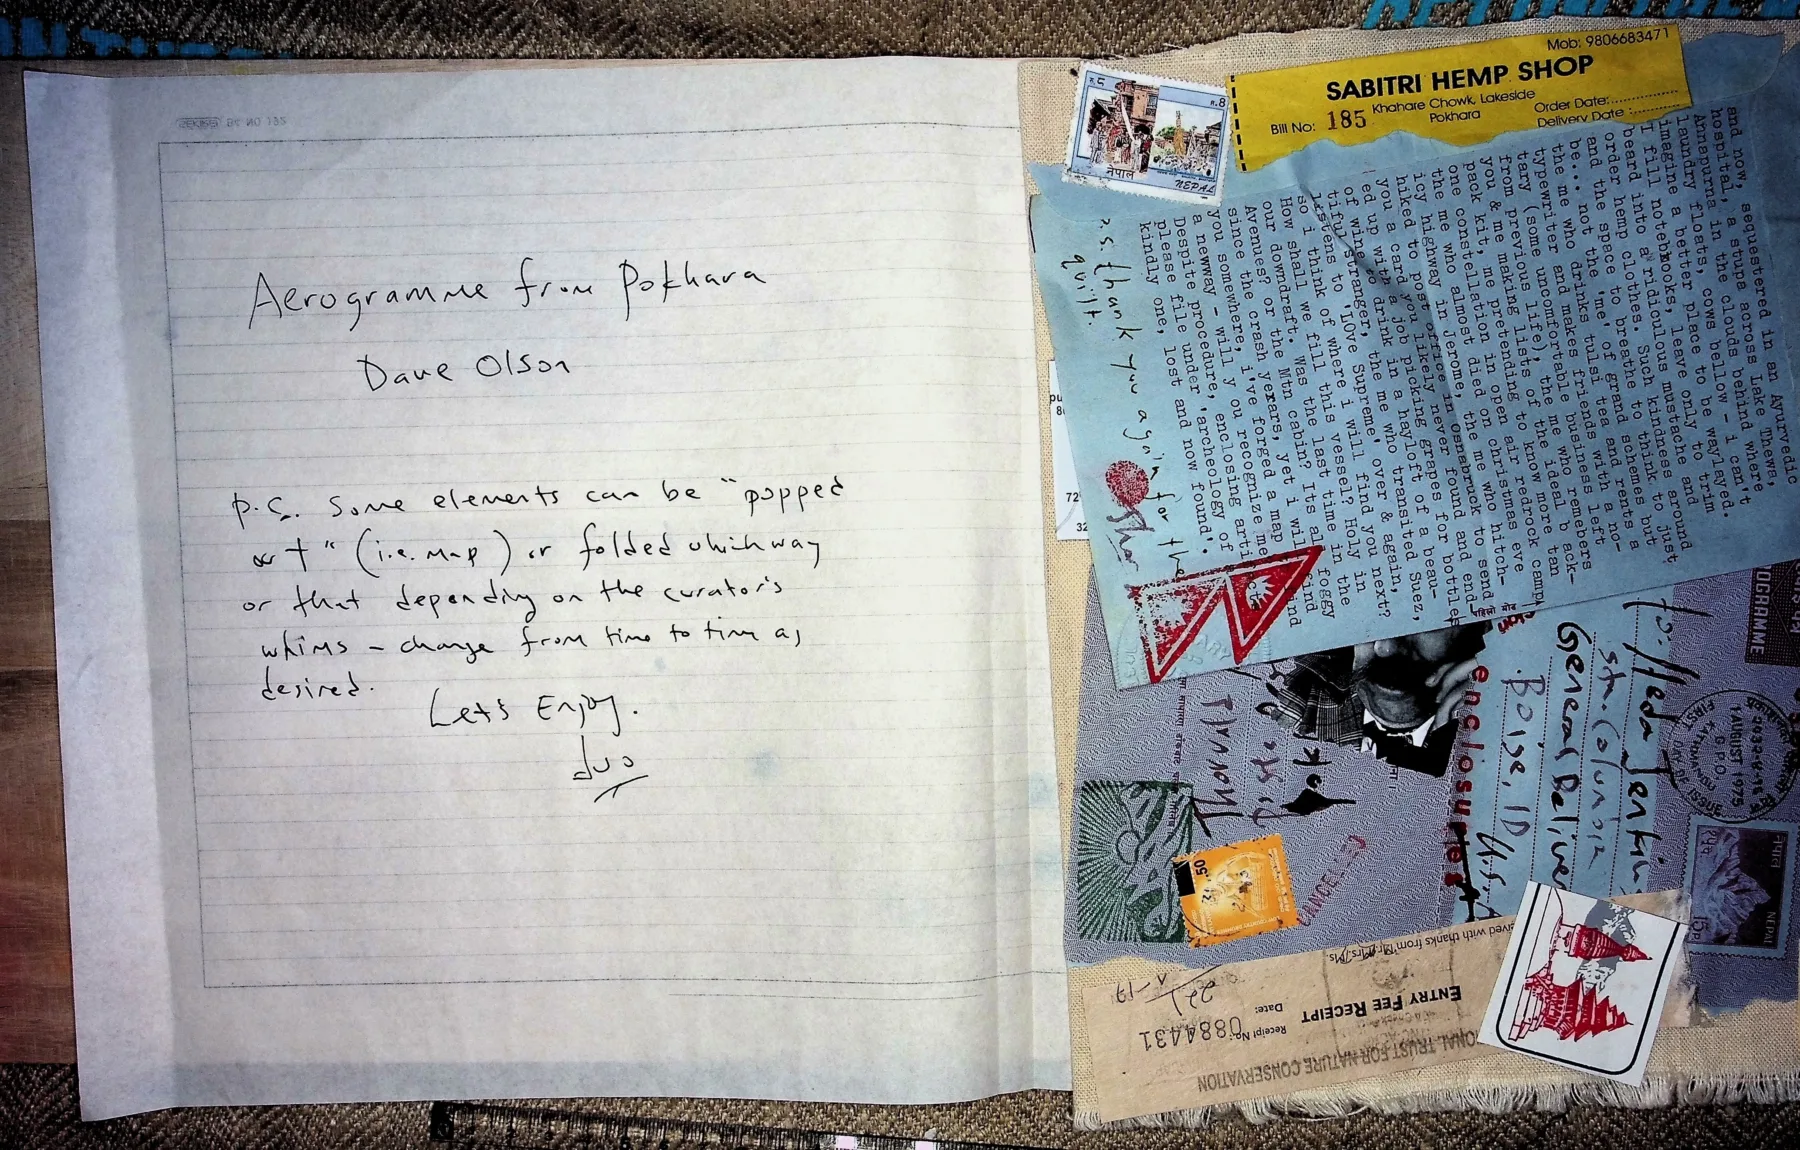 Aerogramme from Pokhara
Dave Olson
P.S. Some elements can be "popped
out" (i.e. map) or folded whichway
or that depending on the curator's
whims – change from time to time as
desired.
Let's Enjoy.
dvo
Mob: 9806683471
SABITRI HEMP SHOP
Khahare Chowk, Lakeside
Pokhara
Bill No: 185
Order Date:
Delivery Date :
नेपाल
NEPAL
and now, sequestered in an Ayurvedic
hospital, a stupa across Lake Thewa,
Annapurna in the clouds behind where
laundry floats, cows bellow - i can't
imagine a better place to be waylayed.
I fill notebooks, leave only to trim
beard into a ridiculous mustache and
order hemp clothes. Such kindness around
and the space to breathe to think to just
be... not the 'me' of grand schemes but
the me who drinks tulsi tea and rents a
typewriter and makes friends with a no-
tary (some uncomfortable business left
from previous life), the me who remebers
you & me making lists of the ideal b ack-
pack kit, me pretending to know more tan
one constellation in open air redrock camp
the me who almost died on christmas eve
icy highway in Jerome, the me who hitch-
hiked to post office in Osnabruck to send
you a card you likely never found and end
ed up with a job picking grapes for bottles
of wine to drink in a hayloft of a beau-
tiful stranger, the me who transited Suez,
listens to 'LOve Supreme' over & again,
so i think of where i will find you next?
How shall we fill this vessel? Holy in
our downdraft. Was the last time in the
Avenues? or the Mtn cabin? Its all foggy
since the crash yexars, yet i will find
you somewhere, i've forged a map
a newway - will y ou recognize me
Despite procedure, enclosing arti
please file under 'archeology of
kindly one, lost and now found'.
p.s. thank you again for the
quilt.
enclosures
General Delivery
Boise, ID
USA
CANCELLED
NEPAL
1 AUGUST 1975
G.P.O.
KATHMANDU
ived with thanks from Mr./Mrs./Ms
ENTRY FEE RECEIPT
Receipt No.: 0884431
Date:
ONAL TRUST FOR NATURE CONSERVATION